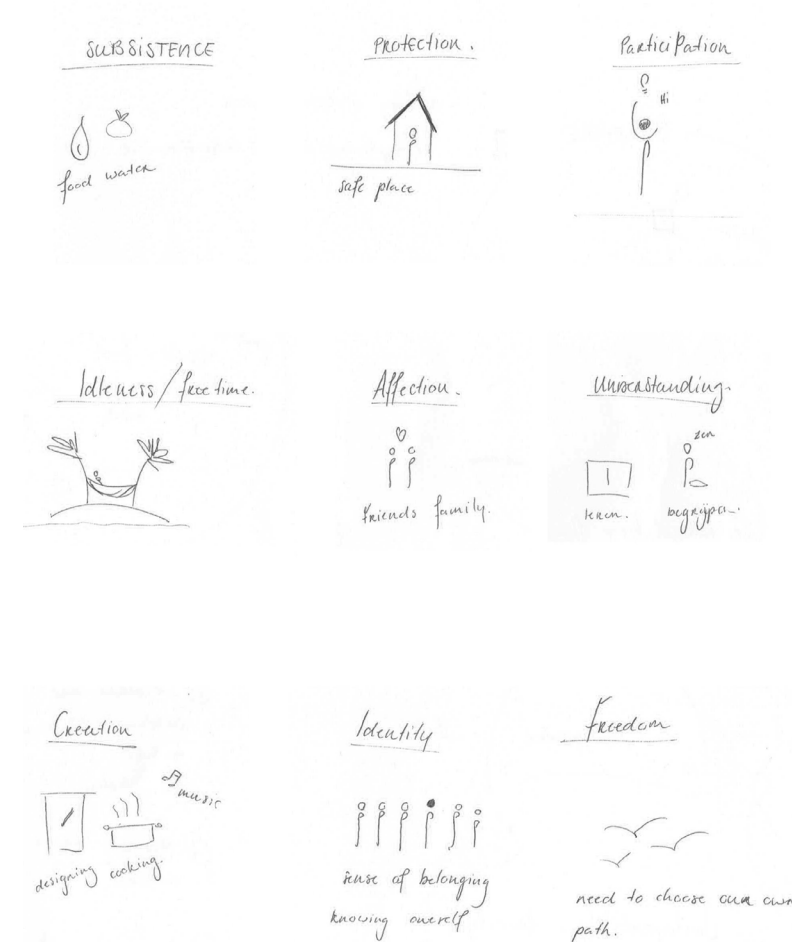 SUBSISTENCE
food water
PROTECTION.
safe place
Participation
Hi
Idleness/free time.
Affection.
friends family.
Understanding.
zen
leren. begrijpen.
Creation
music
designing cooking.
Identity
sense of belonging
knowing oneself
Freedom
need to choose our own
path.